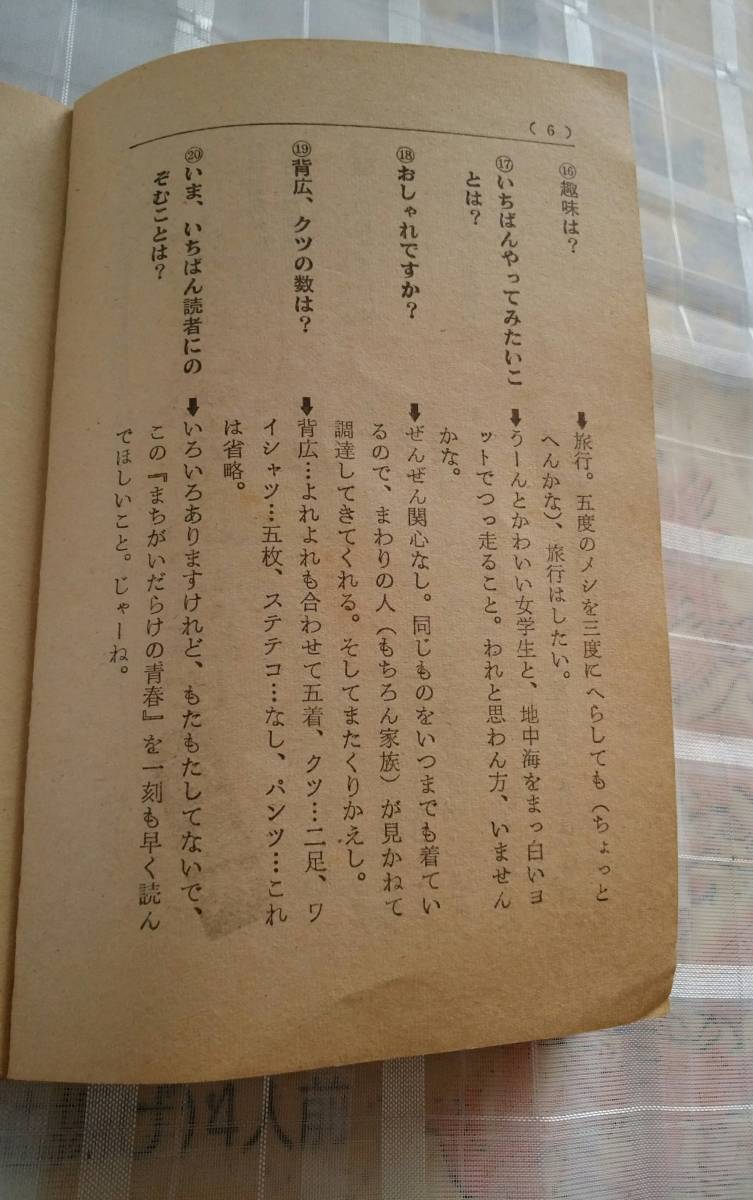 (6)
⑯趣味は?
⬇旅行。五度のメシを三度にへらしても(ちょっと
へんかな)、旅行はしたい。
⑰いちばんやってみたいこ
とは?
⬇うーんとかわいい女学生と、地中海をまっ白いヨ
ットでつっ走ること。われと思わん方、いません
かな。
⑱おしゃれですか?
⬇ぜんぜん関心なし。同じものをいつまでも着てい
るので、まわりの人(もちろん家族)が見かねて
調達してきてくれる。そしてまたくりかえし。
⑲背広、クツの数は?
⬇背広…よれよれも合わせて五着、クツ…二足、ワ
イシャツ…五枚、ステテコ…なし、パンツ…これ
は省略。
⑳いま、いちばん読者にの
ぞむことは?
⬇いろいろありますけれど、もたもたしてないで、
この『まちがいだらけの青春』を一刻も早く読ん
でほしいこと。じゃーね。